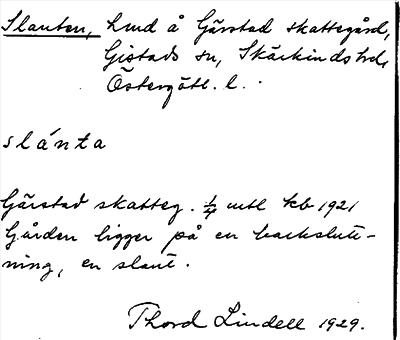 Slanten, hmd å Gärstad skattegård,
Gistads sn, Skärkinds hd,
Östergötl. l.
slánta
Gärstad skatteg. 1/4 mtl kb 1921
Gården ligger på en backslutt-
ning, en slant.
Thord Lindell 1929.